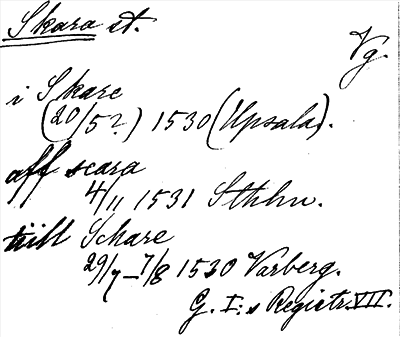 Skara st.
Vg.
i Skare
(20/5?) 1530 (Upsala).
aff scara
4/11 1531 Sthlm.
tiill Schare
29/7–7/8 1530 Varberg.
G. I:s Registr. VII.